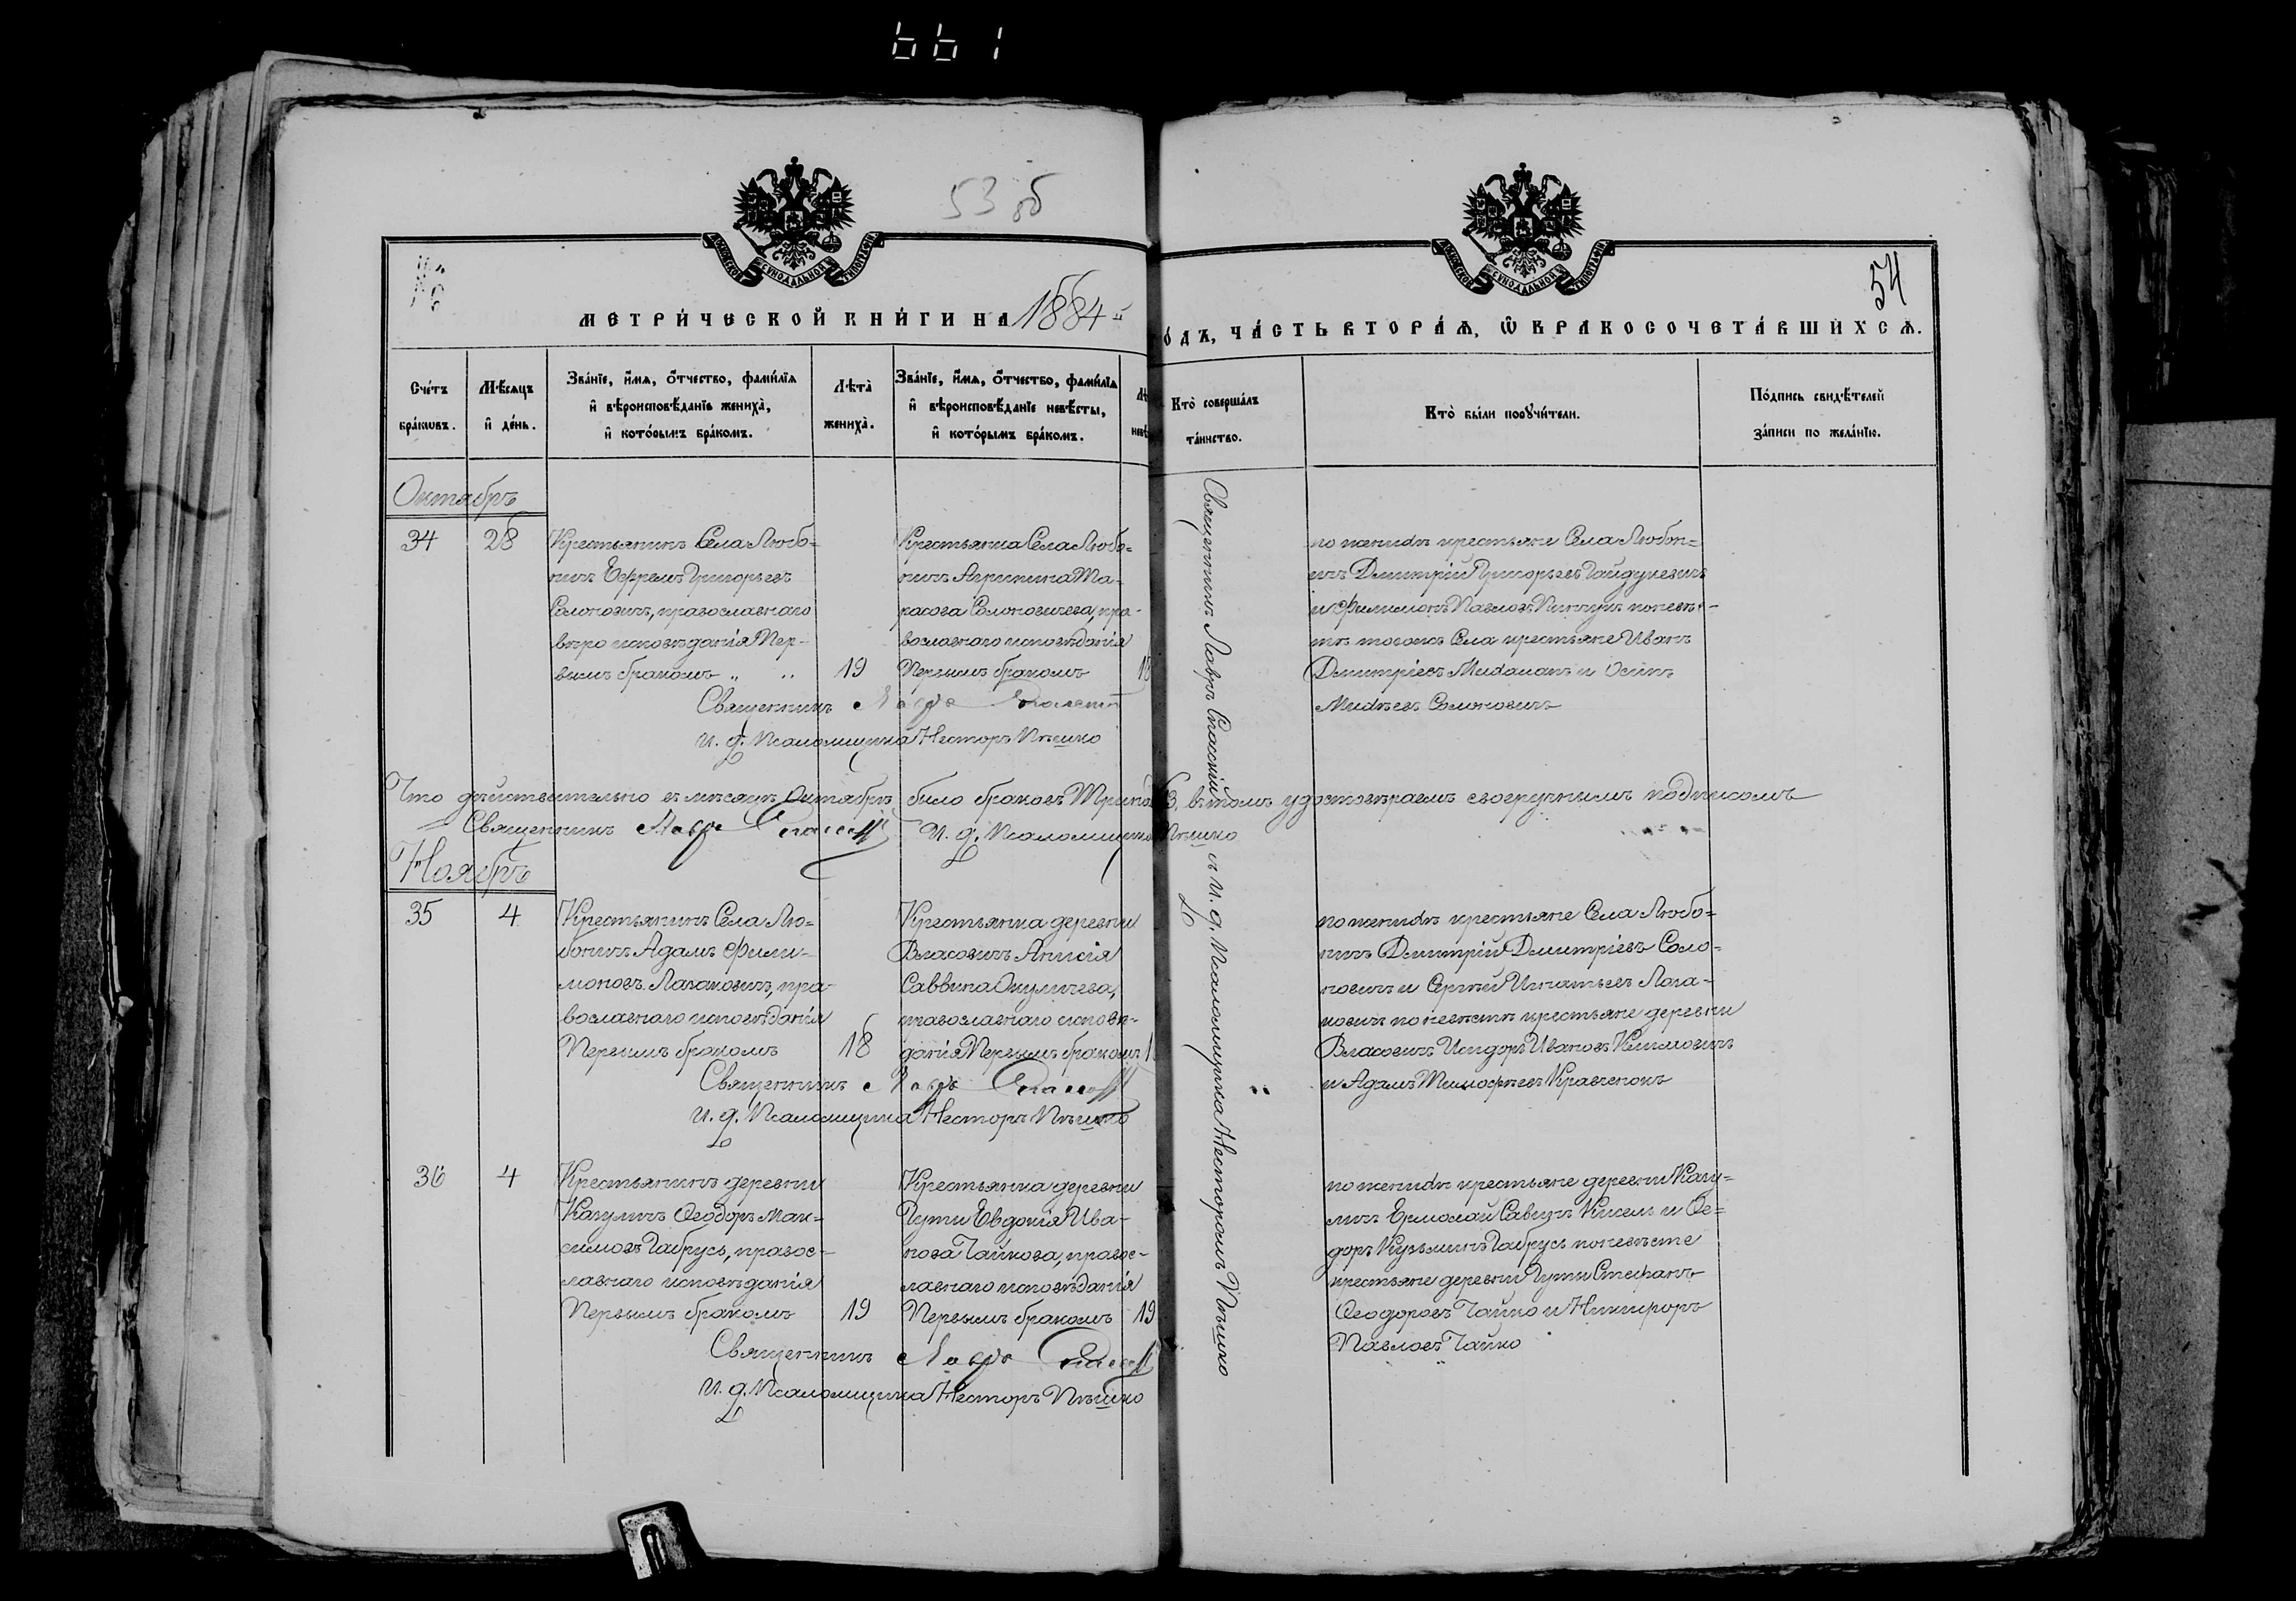 661
53 об
54
МОСКОВСКОЙ СУНОДАЛЬНОЙ ТИПОГРАФІИ
МОСКОВСКОЙ СУНОДАЛЬНОЙ ТИПОГРАФІИ
МЕТРИ́ЧЕСКОЙ КНИ́ГИ НА 1884 й
О́ДЪ, ЧА́СТЬ ВТОРА́Ѧ, Ѽ БРАКОСОЧЕТА́ВШИХСѦ.
Сче́тъ бра́кѡвъ.
Мѣ́сѧцъ и҆ де́нь.
Зва́нїе, и҆́мѧ, ѻ҆́тчество, фами́лїѧ и҆ вѣроисповѣ́данїе жениха̀, и҆ кото́рымъ бра́комъ.
Лѣта̀ жениха̀.
Зва́нїе, и҆́мѧ, ѻ҆́тчество, фами́лїѧ и҆ вѣроисповѣ́данїе невѣ́сты, и҆ кото́рымъ бра́комъ.
Кто̀ соверша́лъ та́инство.
Кто̀ бы́ли порꙋчи́тели.
По́дпись свидѣ́телей за́писи по жела́нїю.
Октябрь
34 28
Крестьянинъ Села Любо=
ничъ Ефремъ Григорьевъ
Солоновичъ, православнаго
вѣроисповѣданія Пер-
вымъ бракомъ „ „ 19
Крестьянка Села Любо=
ничъ Агрипина Ма-
карова Солоновичева, пра-
вославнаго исповѣданія
Первымъ бракомъ 18
по женихѣ крестьяне Села Любон=
ичъ Димитрій Григорьевъ Гайдукевичъ
и Филимонъ Павловъ Пинчукъ по невѣ-
стѣ тогожъ Села крестьяне Иванъ
Димитріевъ и Осипъ
Солоновичъ
Священникъ Лавръ Спасскій
и. д. Псаломщика Несторъ Пѣшко
Что дѣйствительно въ мѣсяцѣ Октябрѣ было браковъ 3, въ томъ удостовѣряемъ своеручнымъ подписомъ
Священникъ Лавръ Спасскій И. д. Псаломщика Пѣшко
Ноябрь
35 4
Крестьянинъ Села Лю=
боничъ Адамъ Фили-
моновъ Лагановичъ, пра-
вославнаго исповѣданія
Первымъ бракомъ 18
Крестьянка деревни
Власовичъ Анисія
Саввина Окуличева,
православнаго исповѣ-
данія Первымъ бракомъ
по женихѣ крестьяне Села Любо=
ничъ Димитрій Димитріевъ Соло-
новичъ и Сергѣй Игнатьевъ Лага-
новичъ по невѣстѣ крестьяне деревни
Власовичъ Исидоръ Ивановъ Климовичъ
и Адамъ Тимофѣевъ Кравченокъ
Священникъ Лавръ Спасскій
и. д. Псаломщика Несторъ Пѣшко
36 4
Крестьянинъ деревни
Казуличъ Ѳеодоръ Мак=
симовъ Габрусь, правос-
лавнаго исповѣданія
Первымъ бракомъ 19
Крестьянка деревни
Гути Евдокія Ива-
нова Чайкова, правос-
лавнаго исповѣданія
Первымъ бракомъ 19
по женихѣ крестьяне деревни Казу=
личъ Ермолай Кисель и Ѳе=
доръ Кузьминъ Габрусь по невѣсте
крестьяне деревни Гути Стефанъ
Ѳеодоровъ Чайко и Никифоръ
Павловъ Чайко
Священникъ Лавръ Спасскій
и. д. Псаломщика Несторъ Пѣшко
Священникъ Лавръ Спасскій съ и. д. Псаломщика Несторомъ Пѣшко